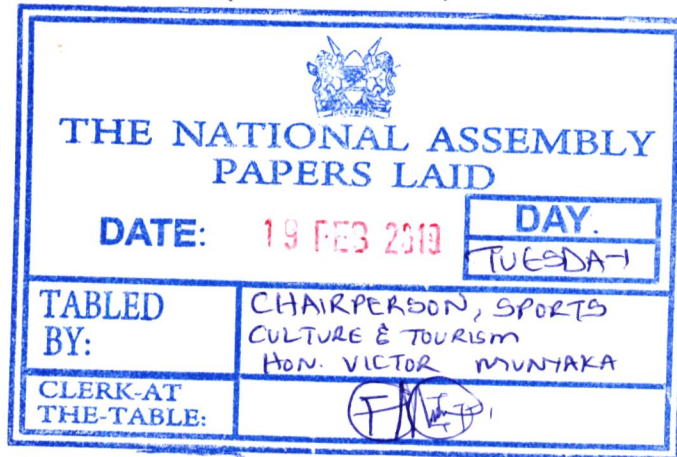 THE NATIONAL ASSEMBLY
PAPERS LAID
DATE: 19 FEB 2019
DAY.
TUESDAY
TABLED BY:
CHAIRPERSON, SPORTS
CULTURE & TOURISM
HON. VICTOR MUNYAKA
CLERK-AT
THE-TABLE: